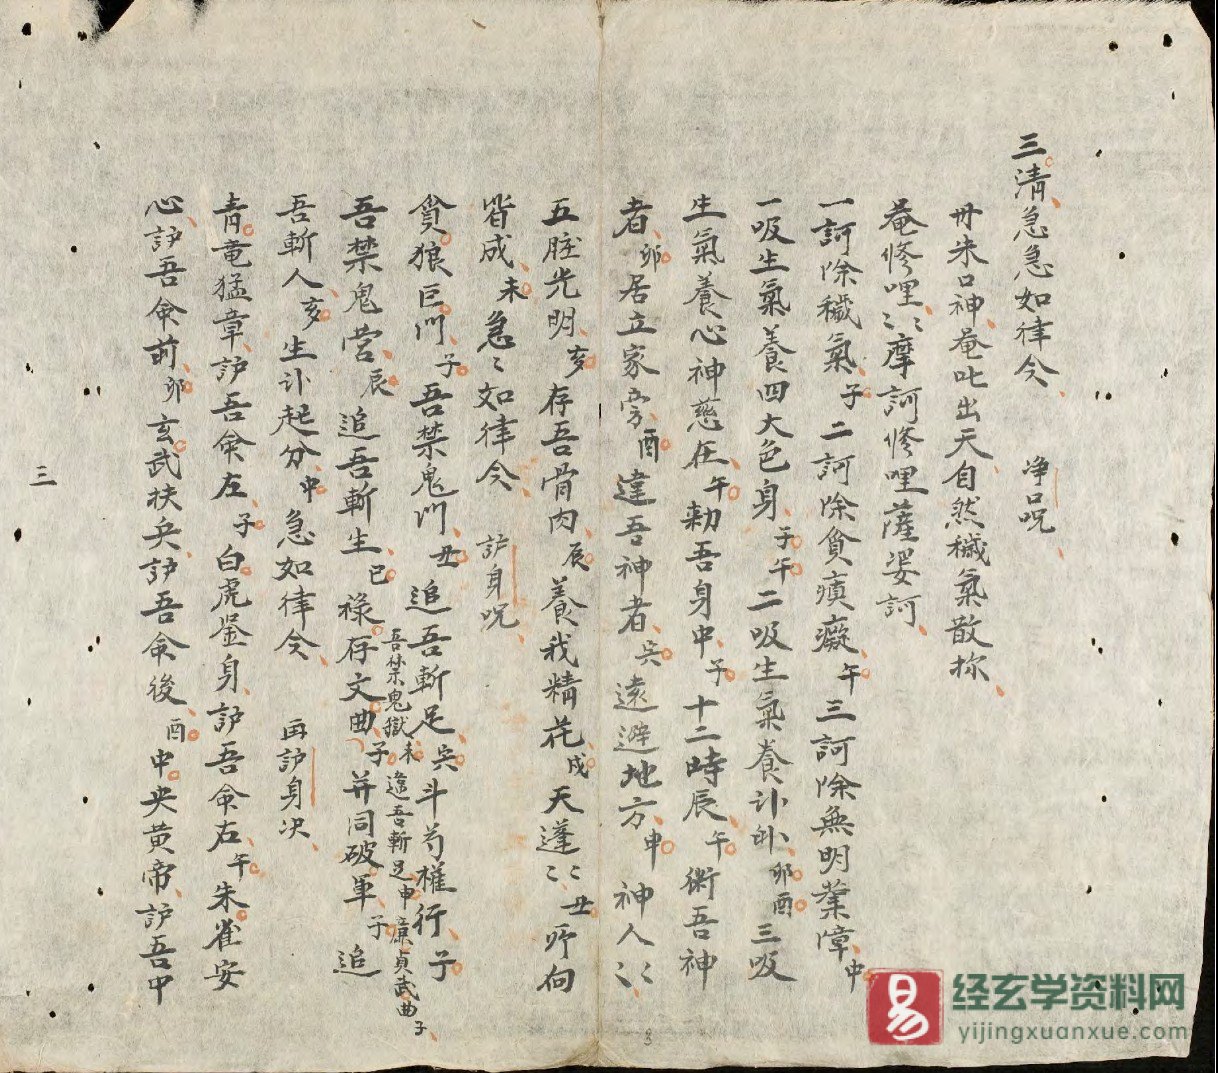 三清急急如律令 净口呪
丹朱口神菴吒出天自然穢氣散拆
菴修哩〻摩訶修哩薩娑訶
一訶除穢氣子二訶除貪瘨癡午三訶除無明業障中
一吸生氣養四大色身子午二吸生氣養卟卧卯酉三吸
生氣養心神慈在午勑吾身中子十二時辰午衛吾神
者卯居立家旁酉違吾神者吴遠避地方申神人〻
五脏光明亥存吾骨肉辰養我精花戌天蓬〻丑所向
皆成未急〻如律令 護身呪
貪狼巨門子吾禁鬼門丑追吾斬足吴斗芍權行子
吾禁鬼营辰追吾斬生巳祿存文曲子并同破軍子追
吾禁鬼獄未違吾斬足申康貞武曲子
吾斬人亥生卟起分中急如律令 再護身决
青竜猛章護吾命左子白虎鉴身護吾命右午朱雀安
心護吾命前卯玄武扶兵護吾命後酉中央黄帝護吾中
三
3
易 经玄学资料网
yijingxuanxue.com